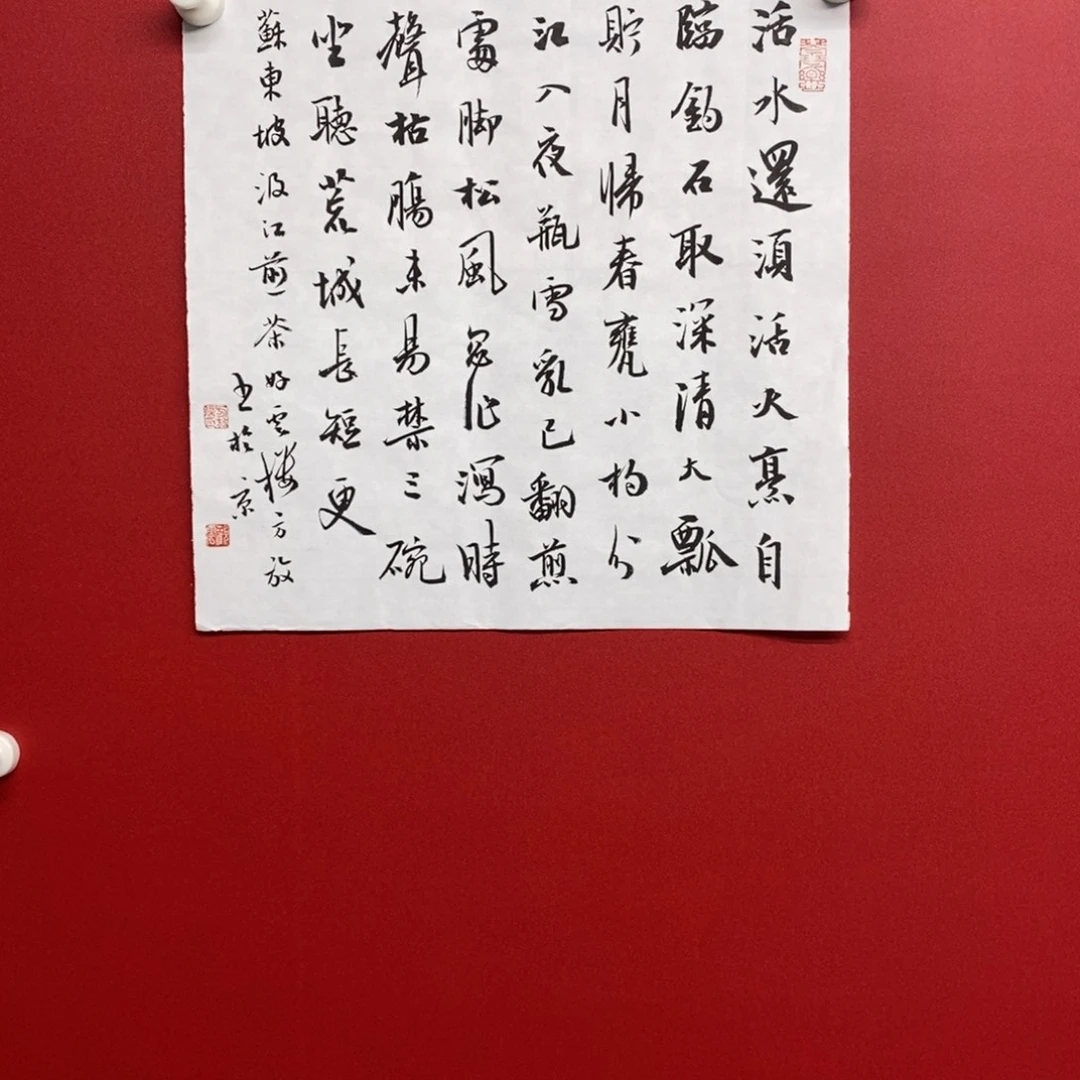 活水還須活火烹自
臨釣石取深清大瓢
貯月歸春甕小杓分
江入夜瓶雪乳已翻煎
處脚松風忽作瀉時
聲枯腸未易禁三碗
坐聽荒城長短更
蘇東坡汲江煎茶好雲樓方放
書於京